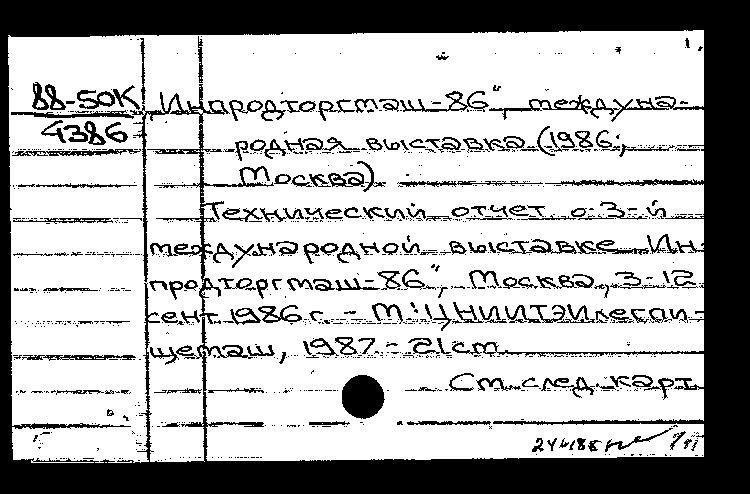 88-50К
4386
„Инпродторгмаш-86“, междуна-
родная выставка (1986;
Москва)
Технический отчет о 3-й
международной выставке „Ин-
продторгмаш-86“, Москва, 3-12
сент. 1986 г. - М.: ЦНИИТЭИлегпи-
щемаш, 1987.- 21 см.
См. след. карт.